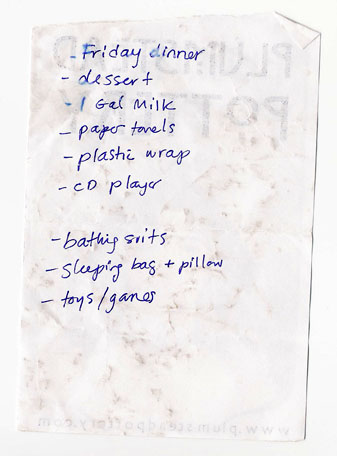 PLUMSTEAD
POTTERY
- Friday dinner
- dessert
- 1 Gal Milk
- paper towels
- plastic wrap
- CD player
- bathing suits
- sleeping bag + pillow
- toys/games
www.plumsteadpottery.com